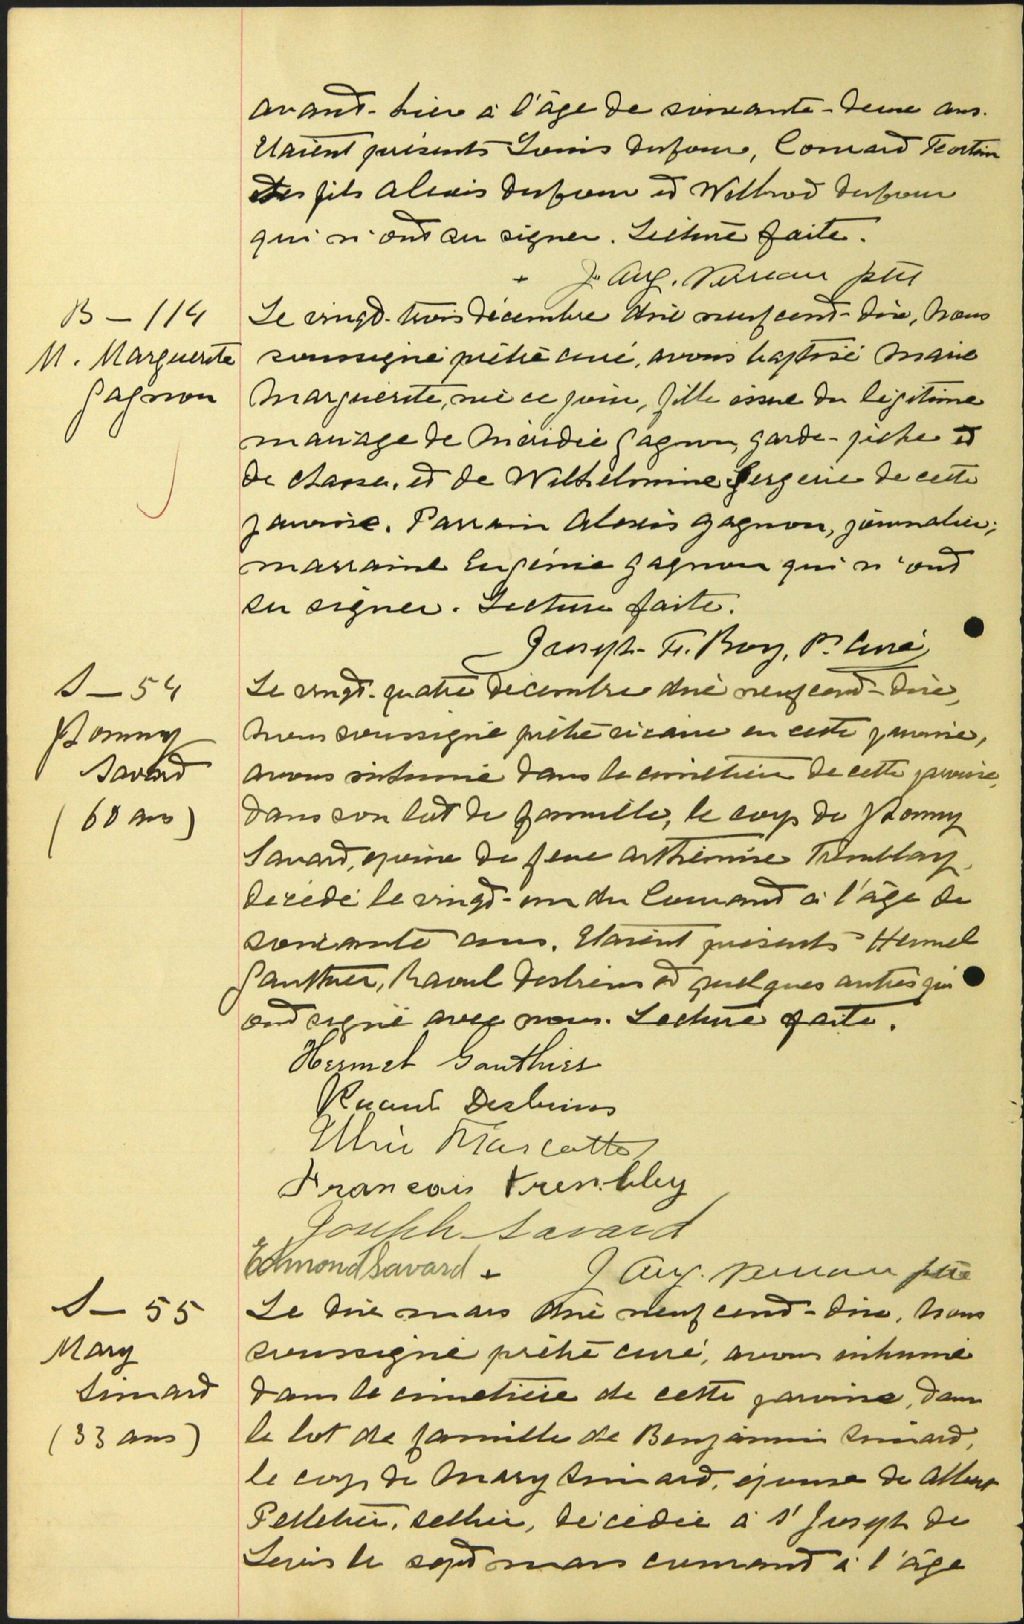 avant-hier à l'âge de soixante-deux ans.
Etaient présents Louis Dufour, Conrad Fortin
ses fils Alexis Dufour et Wilbrod Dufour
qui n'ont su signer. Lecture faite.
J. Aug. ptre
B - 114
M. Marguerite
Gagnon
Le vingt-trois décembre mil neuf cent-dix, nous
soussigné prêtre curé, avons baptisé Marie
Marguerite, née ce jour, fille issue du légitime
mariage de Méridé Gagnon, garde-pêche et
de chasse, et de Wilhelmine Gergerie de cette
paroisse. Parrain Alexis Gagnon, journalier;
marraine Eugénie Gagnon qui n'ont
su signer. Lecture faite.
Joseph-F. Roy, Ptre Curé
S - 54
Johnny
Savard
(60 ans)
Le vingt-quatre décembre mil neuf cent-dix,
nous soussigné prêtre vicaire en cette paroisse,
avons inhumé dans le cimetière de cette paroisse,
dans son lot de famille, le corps de Johnny
Savard, époux de feue Arthémise Tremblay,
décédé le vingt-un du courant à l'âge de
soixante ans. Etaient présents Hermel
Gauthier, Raoul Desbiens et quelques autres qui
ont signé avec nous. Lecture faite.
Hermel Gauthier
Raoul Desbiens
Ulric Marcotte
Francois Trembley
Joseph Savard
Edmond Savard
J Aug. ptre
S - 55
Mary
Simard
(33 ans)
Le dix mars mil neuf cent-dix, nous
soussigné prêtre curé, avons inhumé
dans le cimetière de cette paroisse, dans
le lot de famille de Benjamin Simard,
le corps de Mary Simard, épouse de Albert
Pelletier, sellier, décédée à St Joseph de
Levis le sept mars courant à l'âge